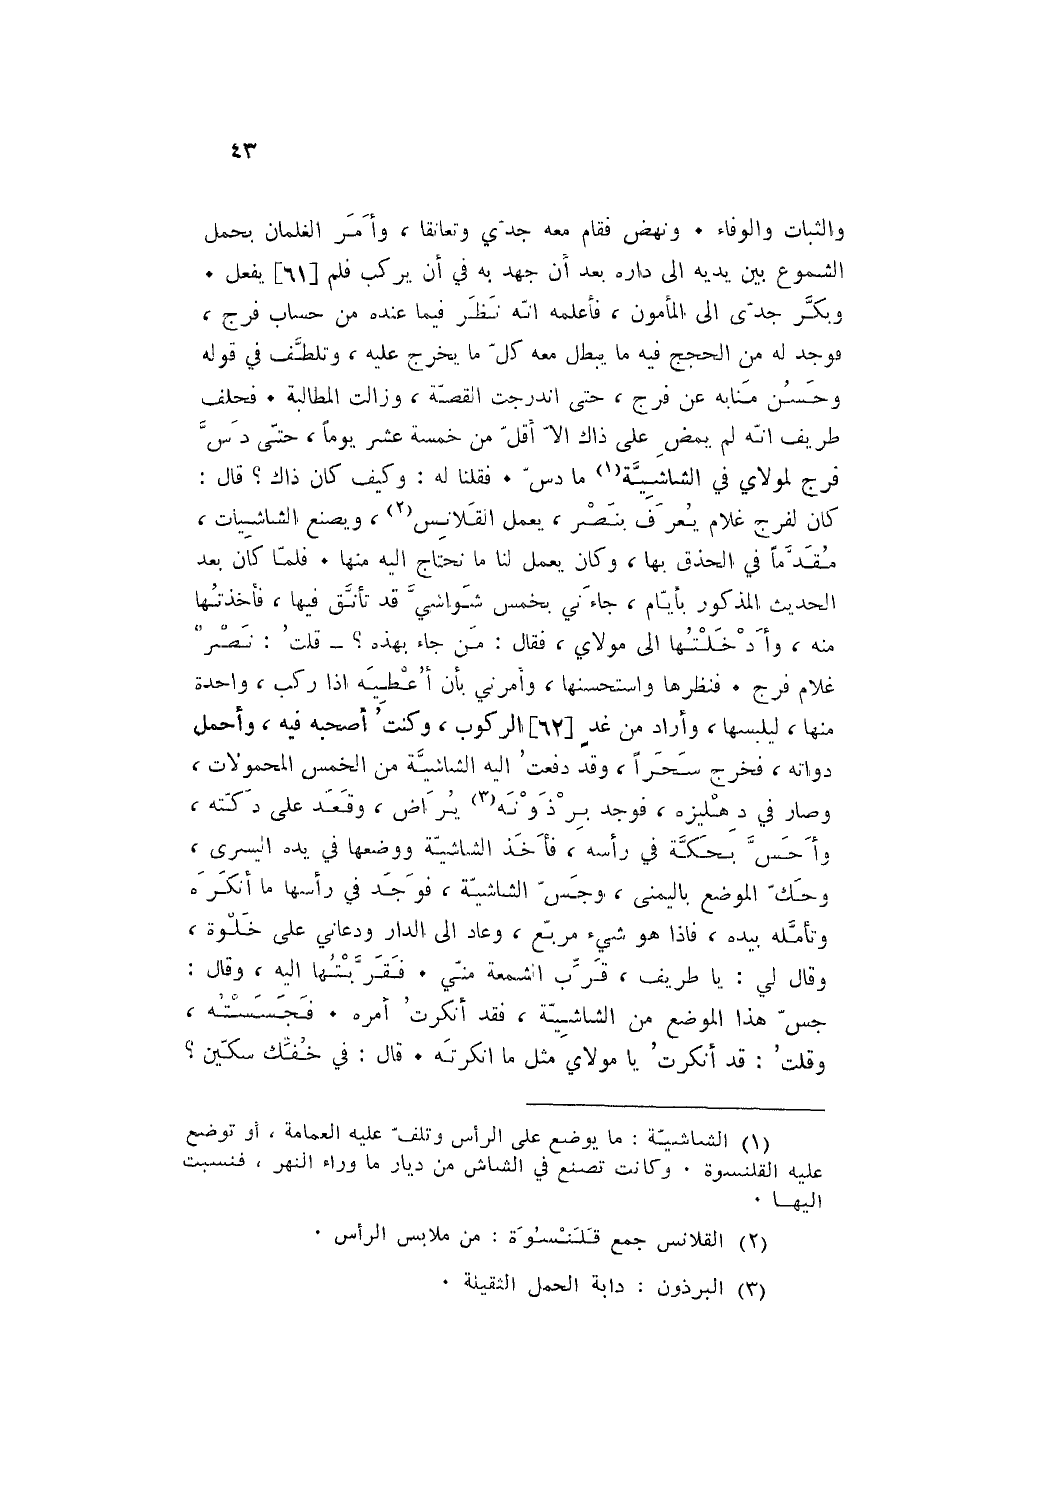 ٤٣
والثبات والوفاء • ونهض فقام معه جدّي وتعانقا ، وأمَرَ الغلمان بحمل
الشموع بين يديه الى داره بعد أن جهد به في أن يركب فلم [٦١] يفعل •
وبكَّر جدّى الى المأمون ، فأعلمه انّه نَظَر فيما عنده من حساب فرج ،
فوجد له من الحجج فيه ما يبطل معه كلّ ما يخرج عليه ، وتلطَّف في قوله
وحَسُن مَنابه عن فرج ، حتى اندرجت القصّة ، وزالت المطالبة • فحلف
طريف انّه لم يمضِ على ذاك الاّ أقلّ من خمسة عشر يوماً ، حتّى دَسَّ
فرج لمولاي في الشاشيَّة(١) ما دسّ • فقلنا له : وكيف كان ذاك ؟ قال :
كان لفرج غلام يُعرَف بنَصْر ، يعمل القَلانِس(٢) ، ويصنع الشاشيات ،
مُقَدَّماً في الحذق بها ، وكان يعمل لنا ما نحتاج اليه منها • فلمّا كان بعد
الحديث المذكور بأيّام ، جاءَني بخمس شَواشيَّ قد تأنَّق فيها ، فأخذتُها
منه ، وأَدْخَلْتُها الى مولاي ، فقال : مَن جاء بهذه ؟ ــ قلتُ : نَصْرٌ
غلام فرج • فنظرها واستحسنها ، وأمرني بأن أُعْطِيَه اذا ركب ، واحدة
منها ، ليلبسها ، وأراد من غدٍ [٦٢] الركوب ، وكنتُ أصحبه فيه ، وأحمل
دواته ، فخرج سَحَراً ، وقد دفعتُ اليه الشاشيَّة من الخمس المحمولات ،
وصار في دِهْليزه ، فوجد بِرْذَوْنَه(٣) يُرَاض ، وقَعَد على دَكّته ،
وأَحَسَّ بَحَكَّة في رأسه ، فأخَذ الشاشيّة ووضعها في يده اليسرى ،
وحَكّ الموضع باليمنى ، وجَسّ الشاشيّة ، فوَجَد في رأسها ما أنكَرَه
وتأمَّله بيده ، فاذا هو شيء مربّع ، وعاد الى الدار ودعاني على خَلْوة ،
وقال لي : يا طريف ، قَرِّب الشمعة منّي • فَقَرَّبْتُها اليه ، وقال :
جسّ هذا الموضع من الشاشيِّة ، فقد أنكرتُ أمره • فَجَسَسْتُه ،
وقلتُ : قد أنكرتُ يا مولاي مثل ما انكرتَه • قال : في خُفّك سكّين ؟
(١) الشاشيّة : ما يوضع على الرأس وتلفّ عليه العمامة ، أو توضع
عليه القلنسوة • وكانت تصنع في الشاش من ديار ما وراء النهر ، فنسبت
اليها •
(٢) القلانس جمع قَلَنْسُوَة : من ملابس الرأس •
(٣) البرذون : دابة الحمل الثقيلة •